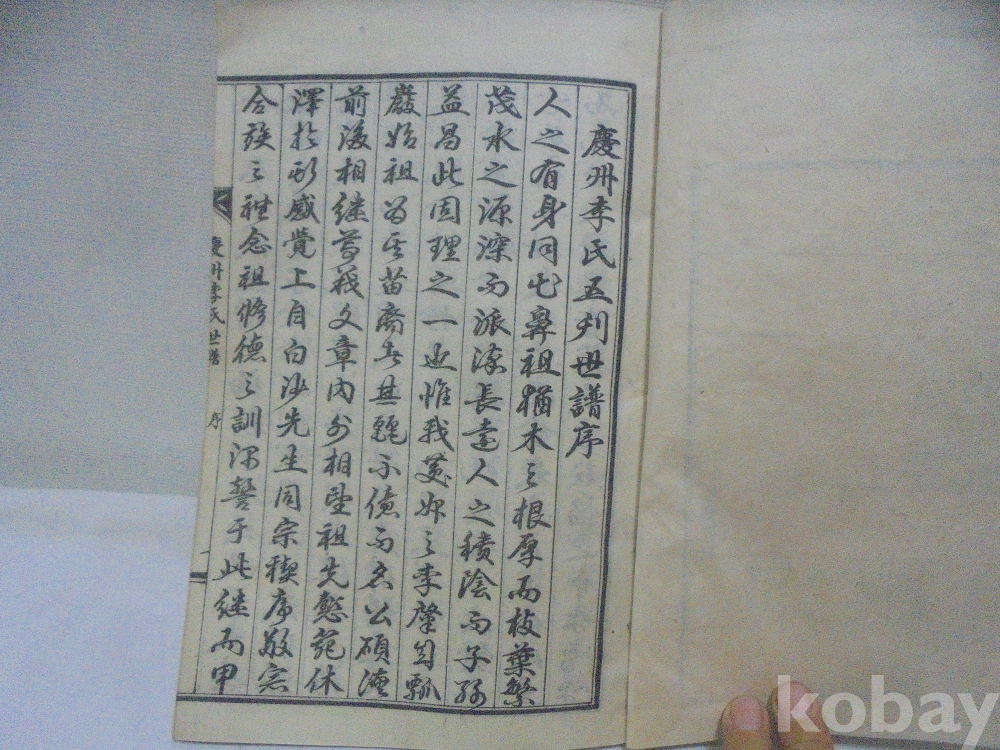 慶州李氏五刋世譜序
人之有身同出鼻祖猶木之根厚而枝葉繁
茂水之源深而派流長遠人之積陰而子孫
益昌此固理之一也惟我慶州之李肇自瓢
巖始祖爲其苗裔者其麗不億而名公碩
前後相継勳義文章內外相望祖先懿範休
澤於斯感覺上自白沙先生同宗稧序敬宗
合族之礼念祖修德之訓深誓于此継而甲
慶州李氏世譜
序
一
kobay